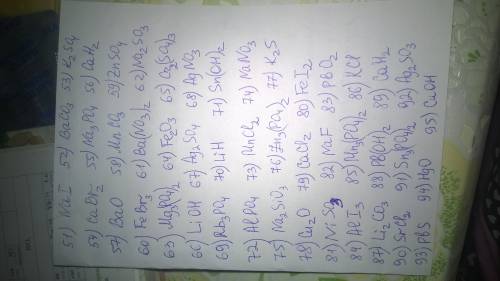 51) NaI 52) BaCO3 53) K2SO4
54) CaBr2 55) Na3PO4 56) CaH2
57) BaO 58) MnSO4 59) ZnSO4
60) FeBr3 61) Ba(NO3)2 62) Na2SO3
63) Mg3(PO4)2 64) Fe2O3 65) Cr2(SO4)3
66) LiOH 67) Ag2SO4 68) AgNO3
69) Rb3PO4 70) LiH 71) Sn(OH)2
72) AlPO4 73) MnCl2 74) NaNO3
75) Na2SiO3 76) Zn3(PO4)2 77) K2S
78) Cu2O 79) CaCl2 80) FeI2
81) NiSO3 82) NaF 83) PbO2
84) AlI3 85) Mn3(PO4)2 86) KCl
87) Li2CO3 88) Pb(OH)2 89) CaH2
90) SrCl2 91) Sn3(PO4)2 92) Ag2SO3
93) PbS 94) HgO 95) CuOH